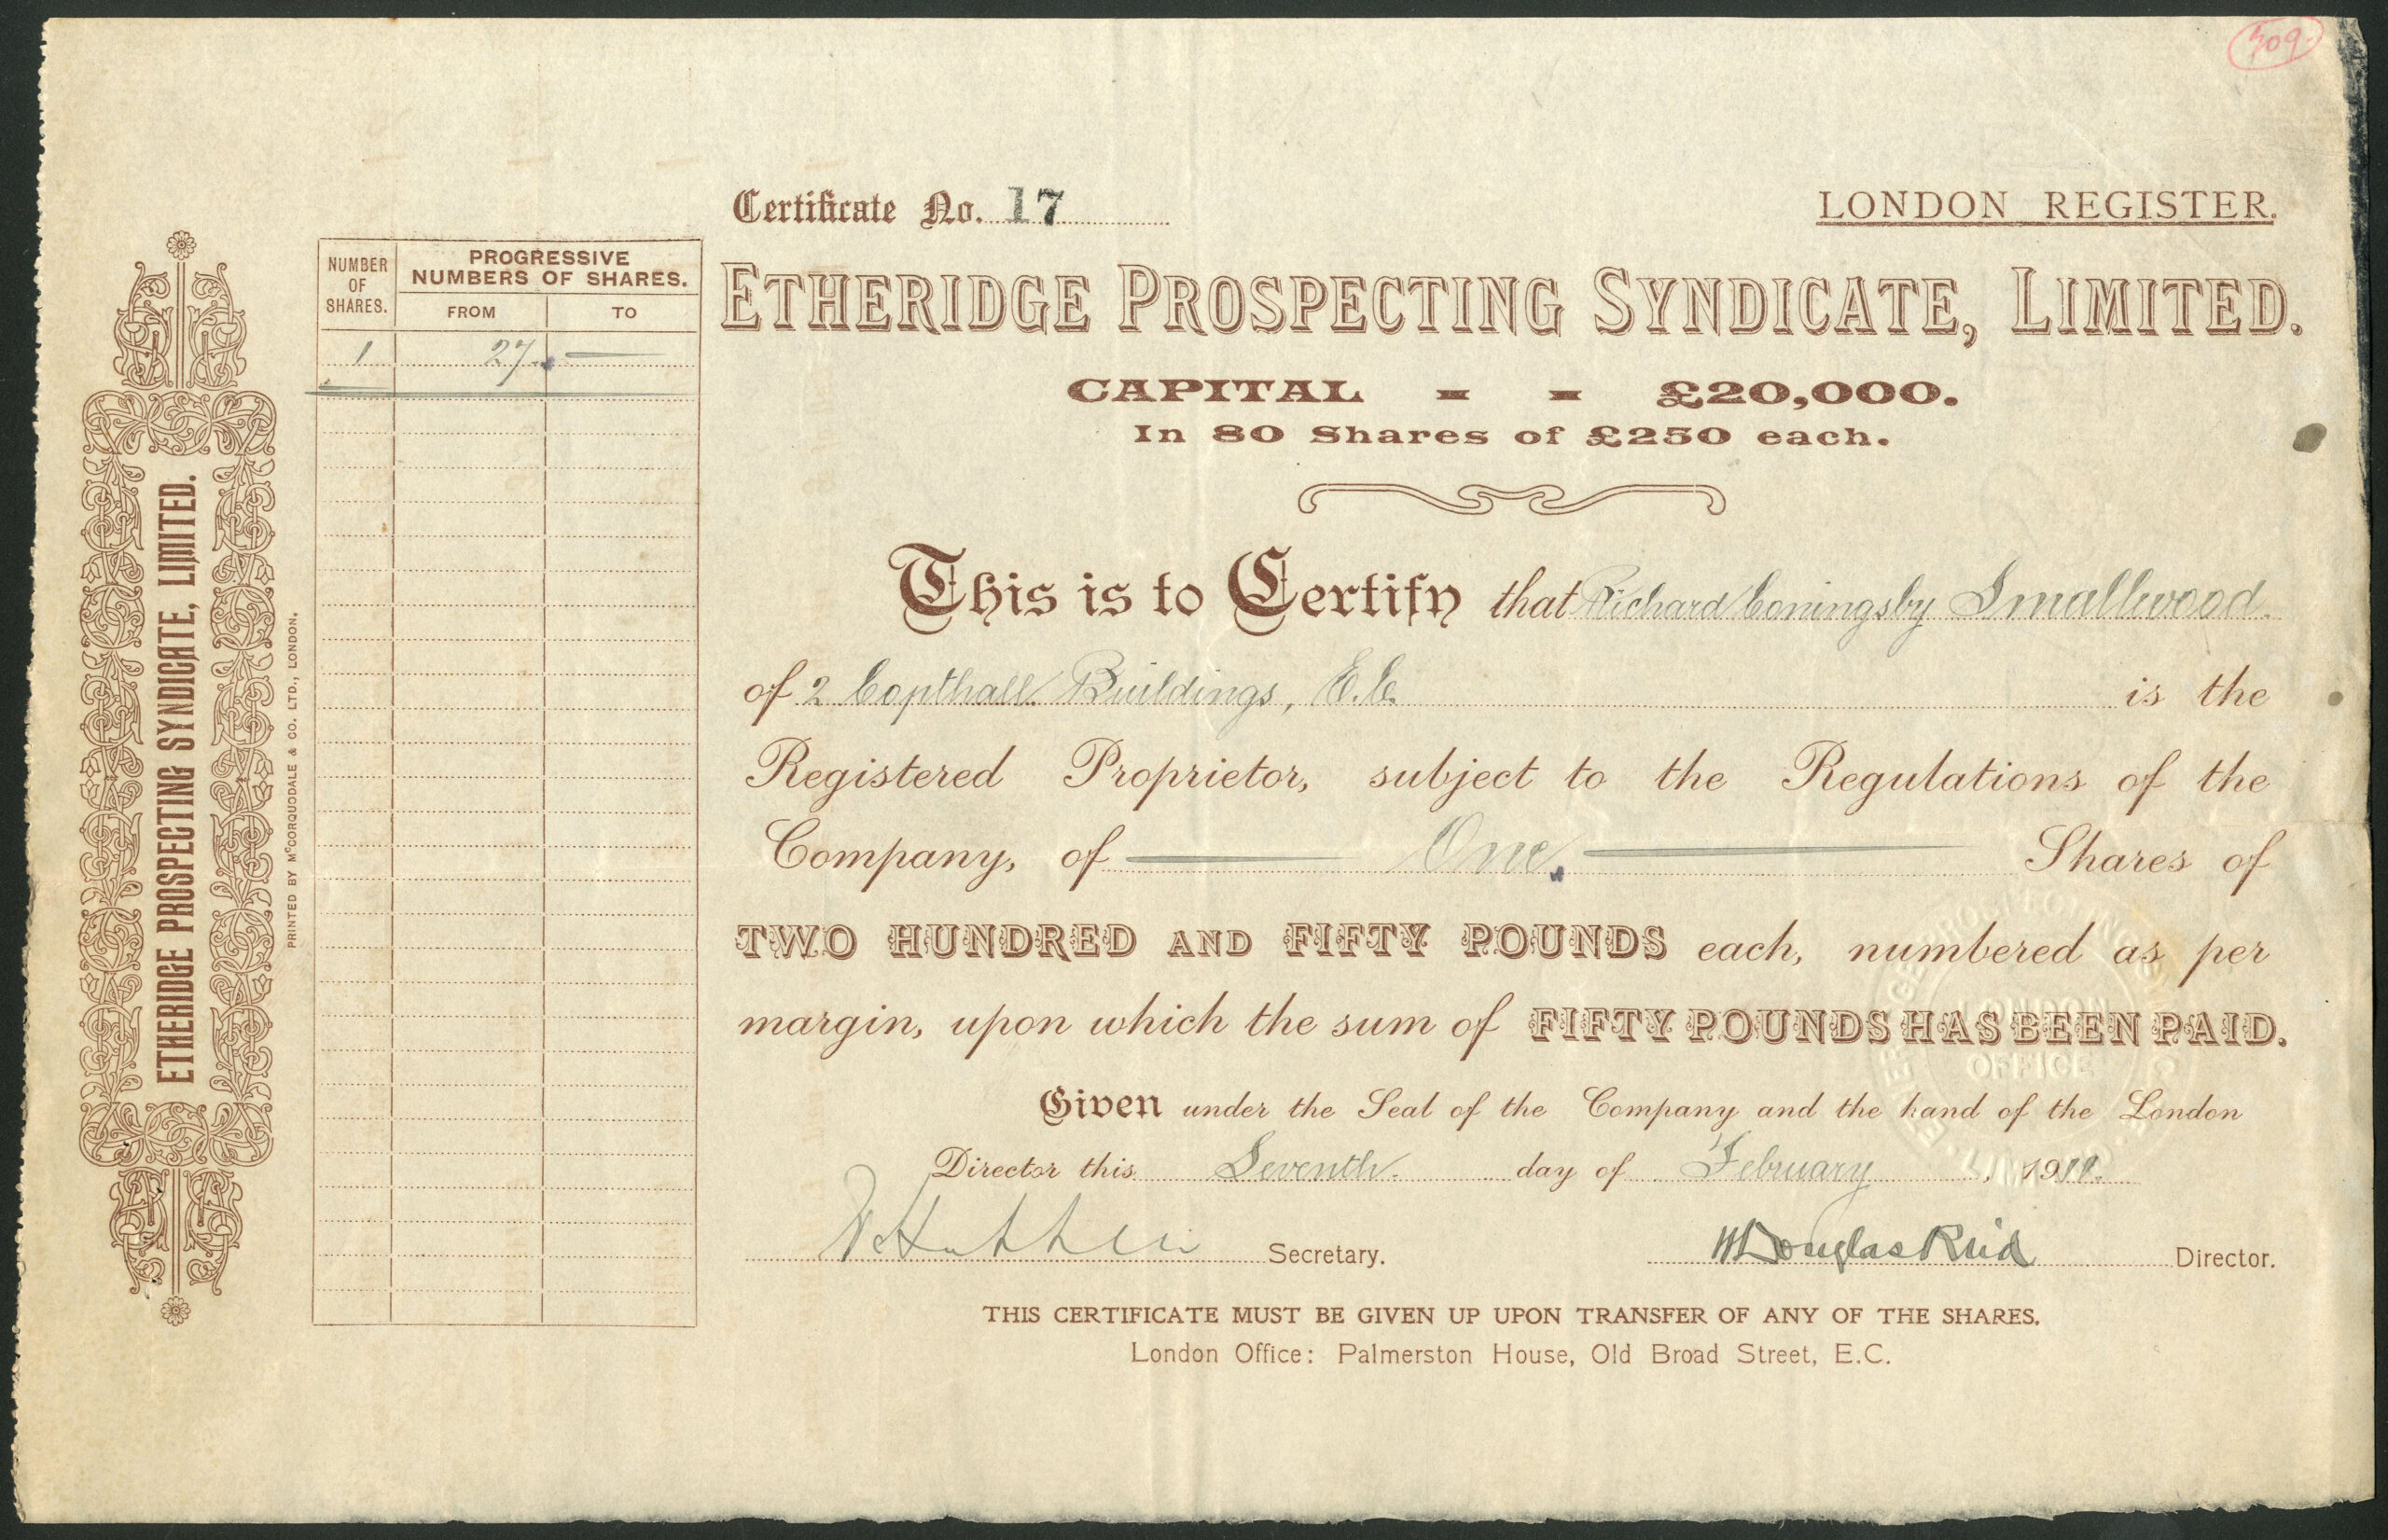 509
Certificate No. 17
LONDON REGISTER.
ETHERIDGE PROSPECTING SYNDICATE, LIMITED.
CAPITAL - - £20,000.
In 80 Shares of £250 each.
NUMBER OF SHARES.
PROGRESSIVE NUMBERS OF SHARES.
FROM TO
1 27
ETHERIDGE PROSPECTING SYNDICATE, LIMITED.
PRINTED BY McCORQUODALE & CO. LTD., LONDON.
This is to Certify that Richard Coningsby Smallwood.
of 2 Copthall Buildings, E.C. is the
Registered Proprietor, subject to the Regulations of the
Company, of One. Shares of
TWO HUNDRED AND FIFTY POUNDS each, numbered as per
margin, upon which the sum of FIFTY POUNDS HAS BEEN PAID.
LONDON
OFFICE
Given under the Seal of the Company and the hand of the London
Director this Seventh day of February, 1911.
Secretary.
W Douglas Reid Director.
THIS CERTIFICATE MUST BE GIVEN UP UPON TRANSFER OF ANY OF THE SHARES.
London Office: Palmerston House, Old Broad Street, E.C.